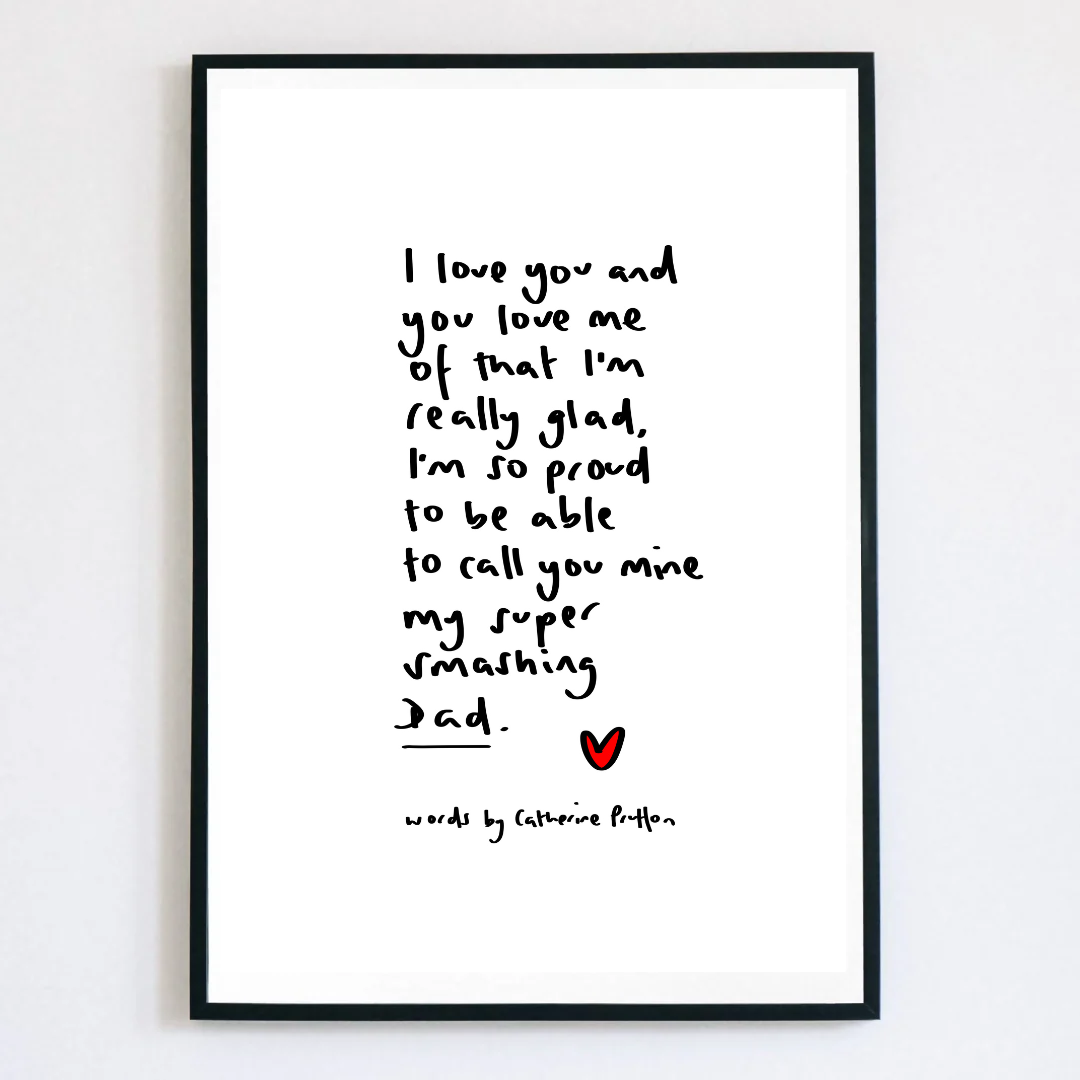 I love you and
you love me
of that I'm
really glad,
I'm so proud
to be able
to call you mine
my super
smashing
Dad.
words by Catherine Prutton